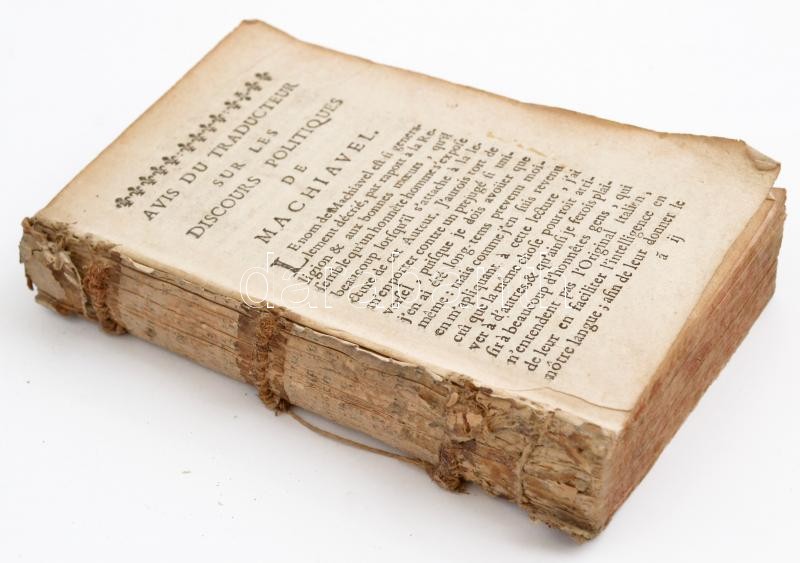 AVIS DU TRADUCTEUR
SUR LES
DISCOURS POLITIQUES
DE
MACHIAVEL.
LE nom de Machiavel est si genera-
lement décrié, par raport à la Re-
ligion & aux bonnes mœurs, qu'il
semble qu'un honnête homme s'expose
beaucoup lorsqu'il s'attache à la le-
cture de cet Auteur. J'aurois tort de
m'emporter contre un préjugé si uni-
versel, puisque je dois avouër que
j'en ai été long-tems prevenu moi-
même; mais comme j'en suis revenu
en m'apliquant à cette lecture, j'ai
crû que la même chose pourroit arri-
ver à d'autres, & qu'ainsi je ferois plai-
sir à beaucoup d'honnêtes gens, qui
n'entendent pas l'Original Italien,
de leur en faciliter l'intelligence en
nôtre langue, afin de leur donner le
á ij
darabanth